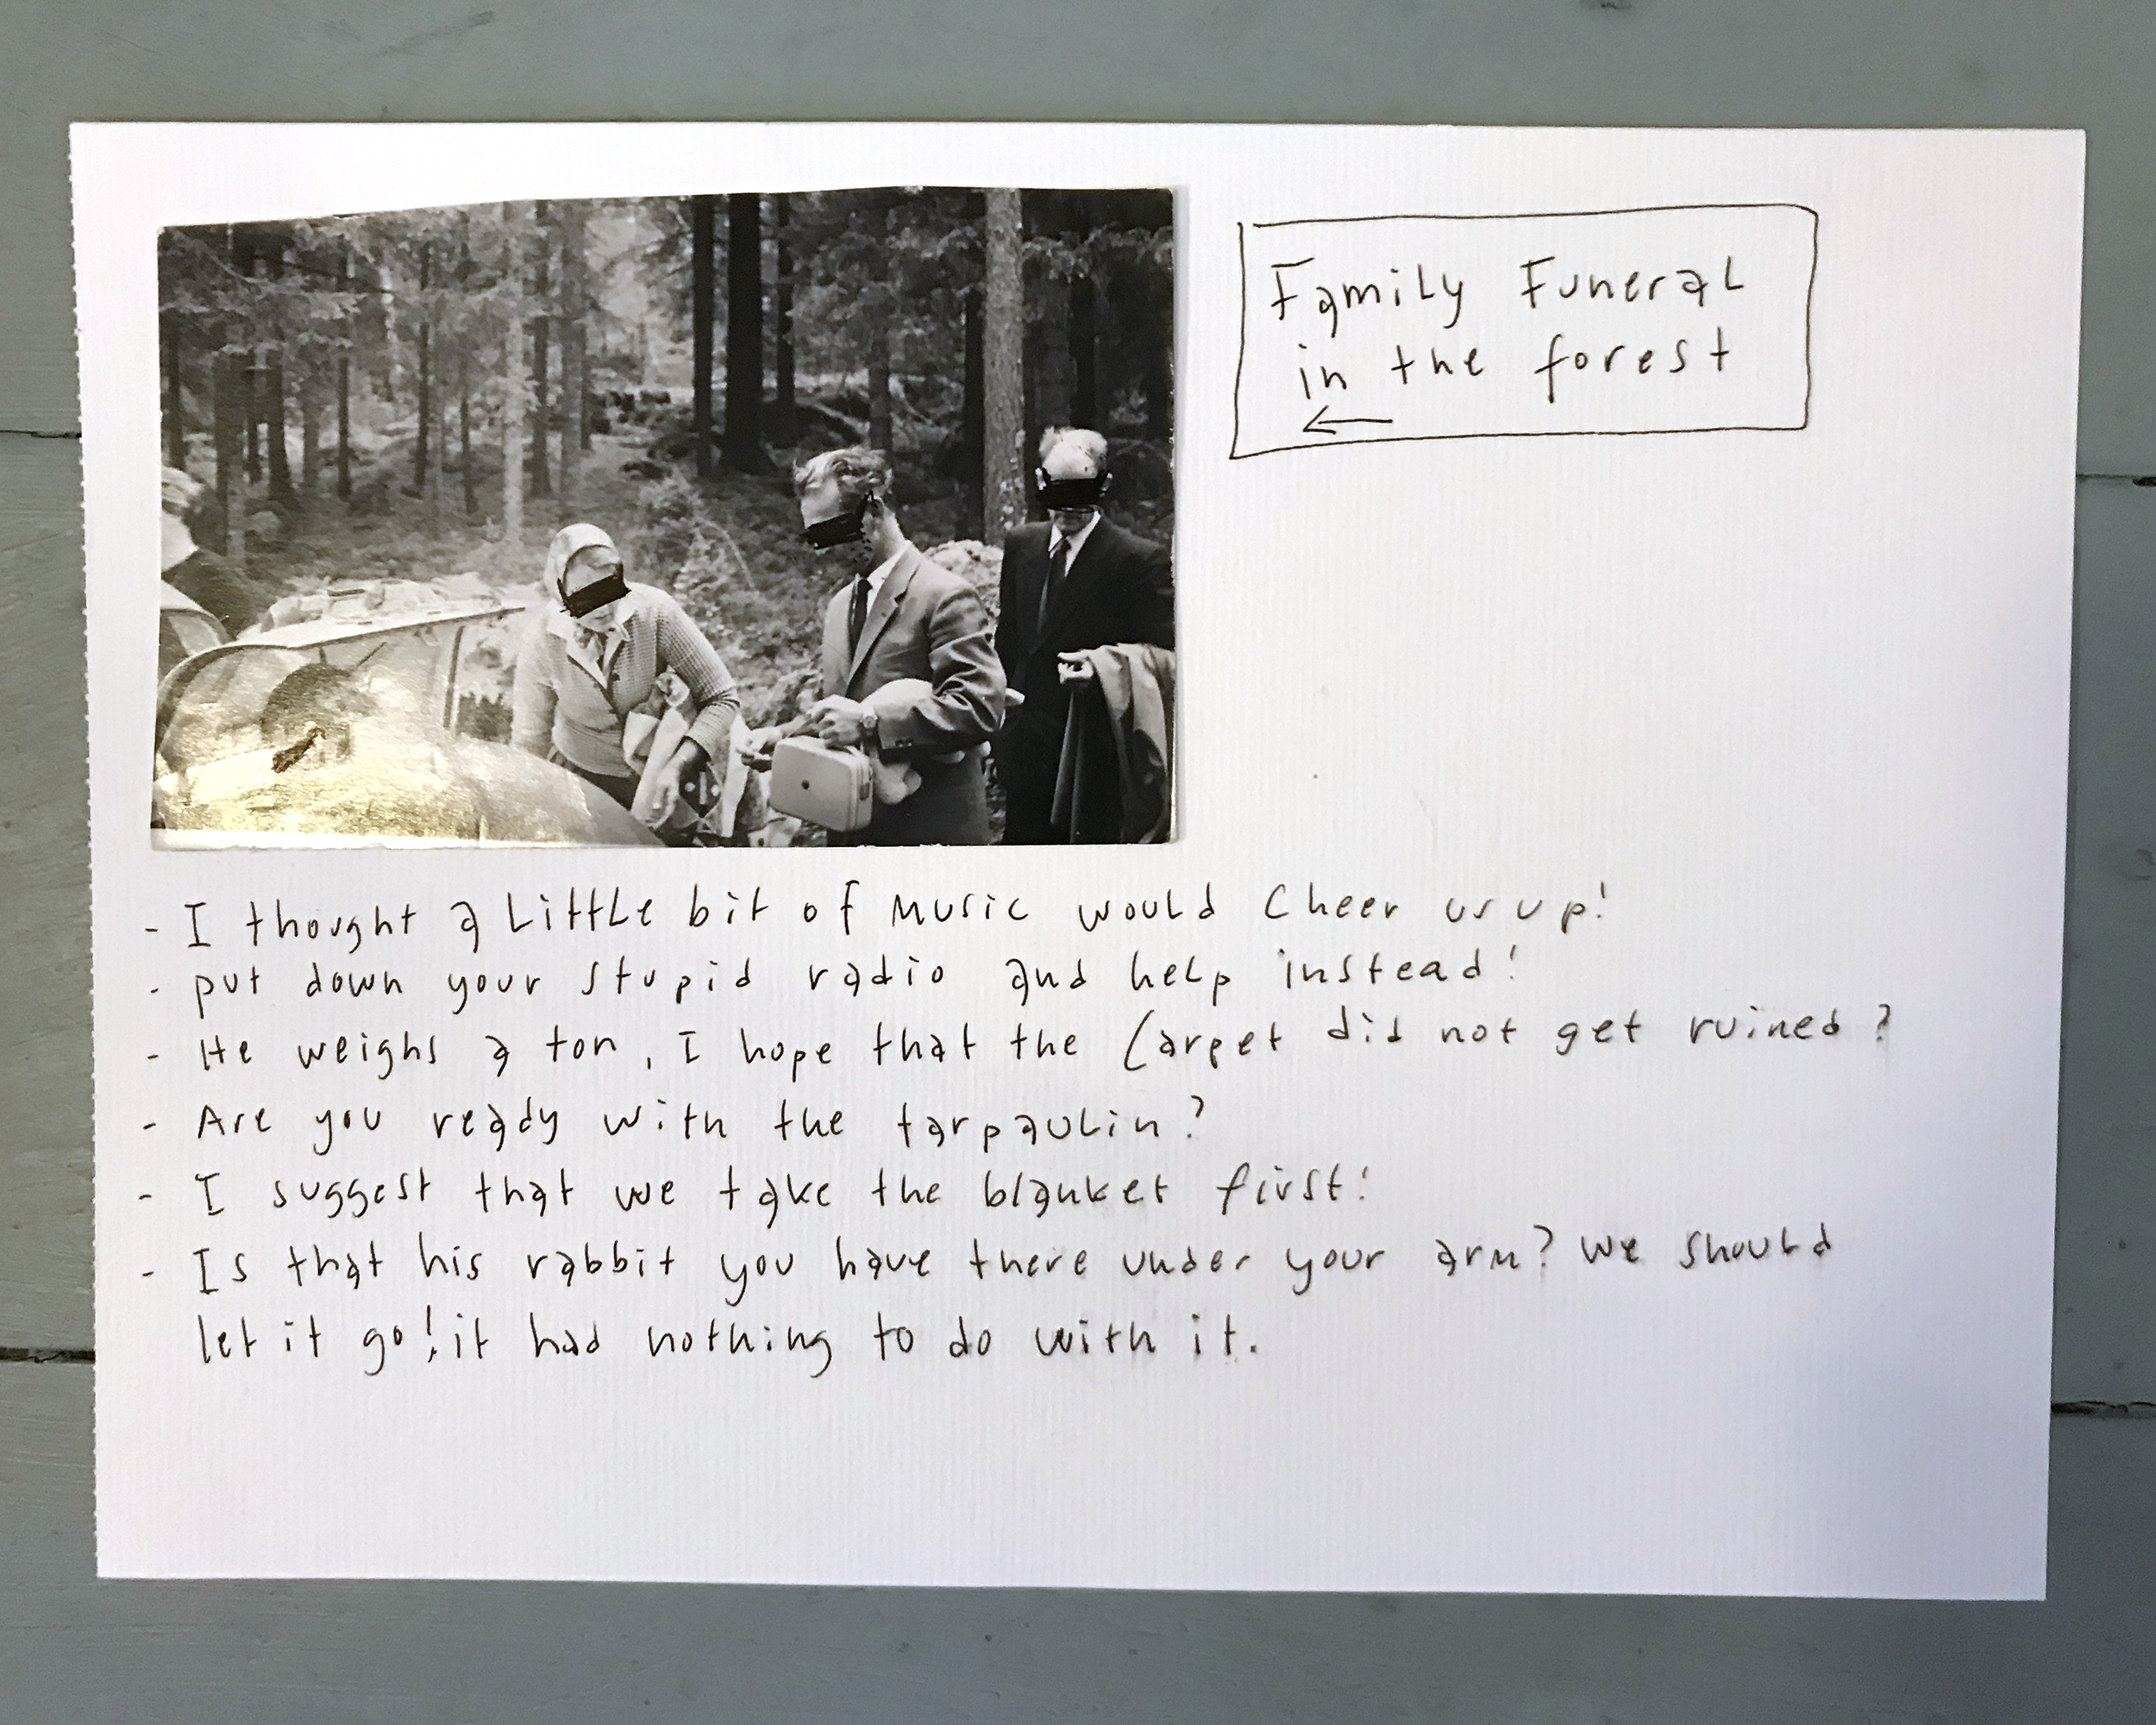 Family Funeral
in the forest
←
- I thought a little bit of music would cheer us up!
- put down your stupid radio and help instead!
- He weighs a ton, I hope that the Carpet did not get ruined?
- Are you ready with the tarpaulin?
- I suggest that we take the blanket first!
- Is that his rabbit you have there under your arm? we should
let it go! it had nothing to do with it.